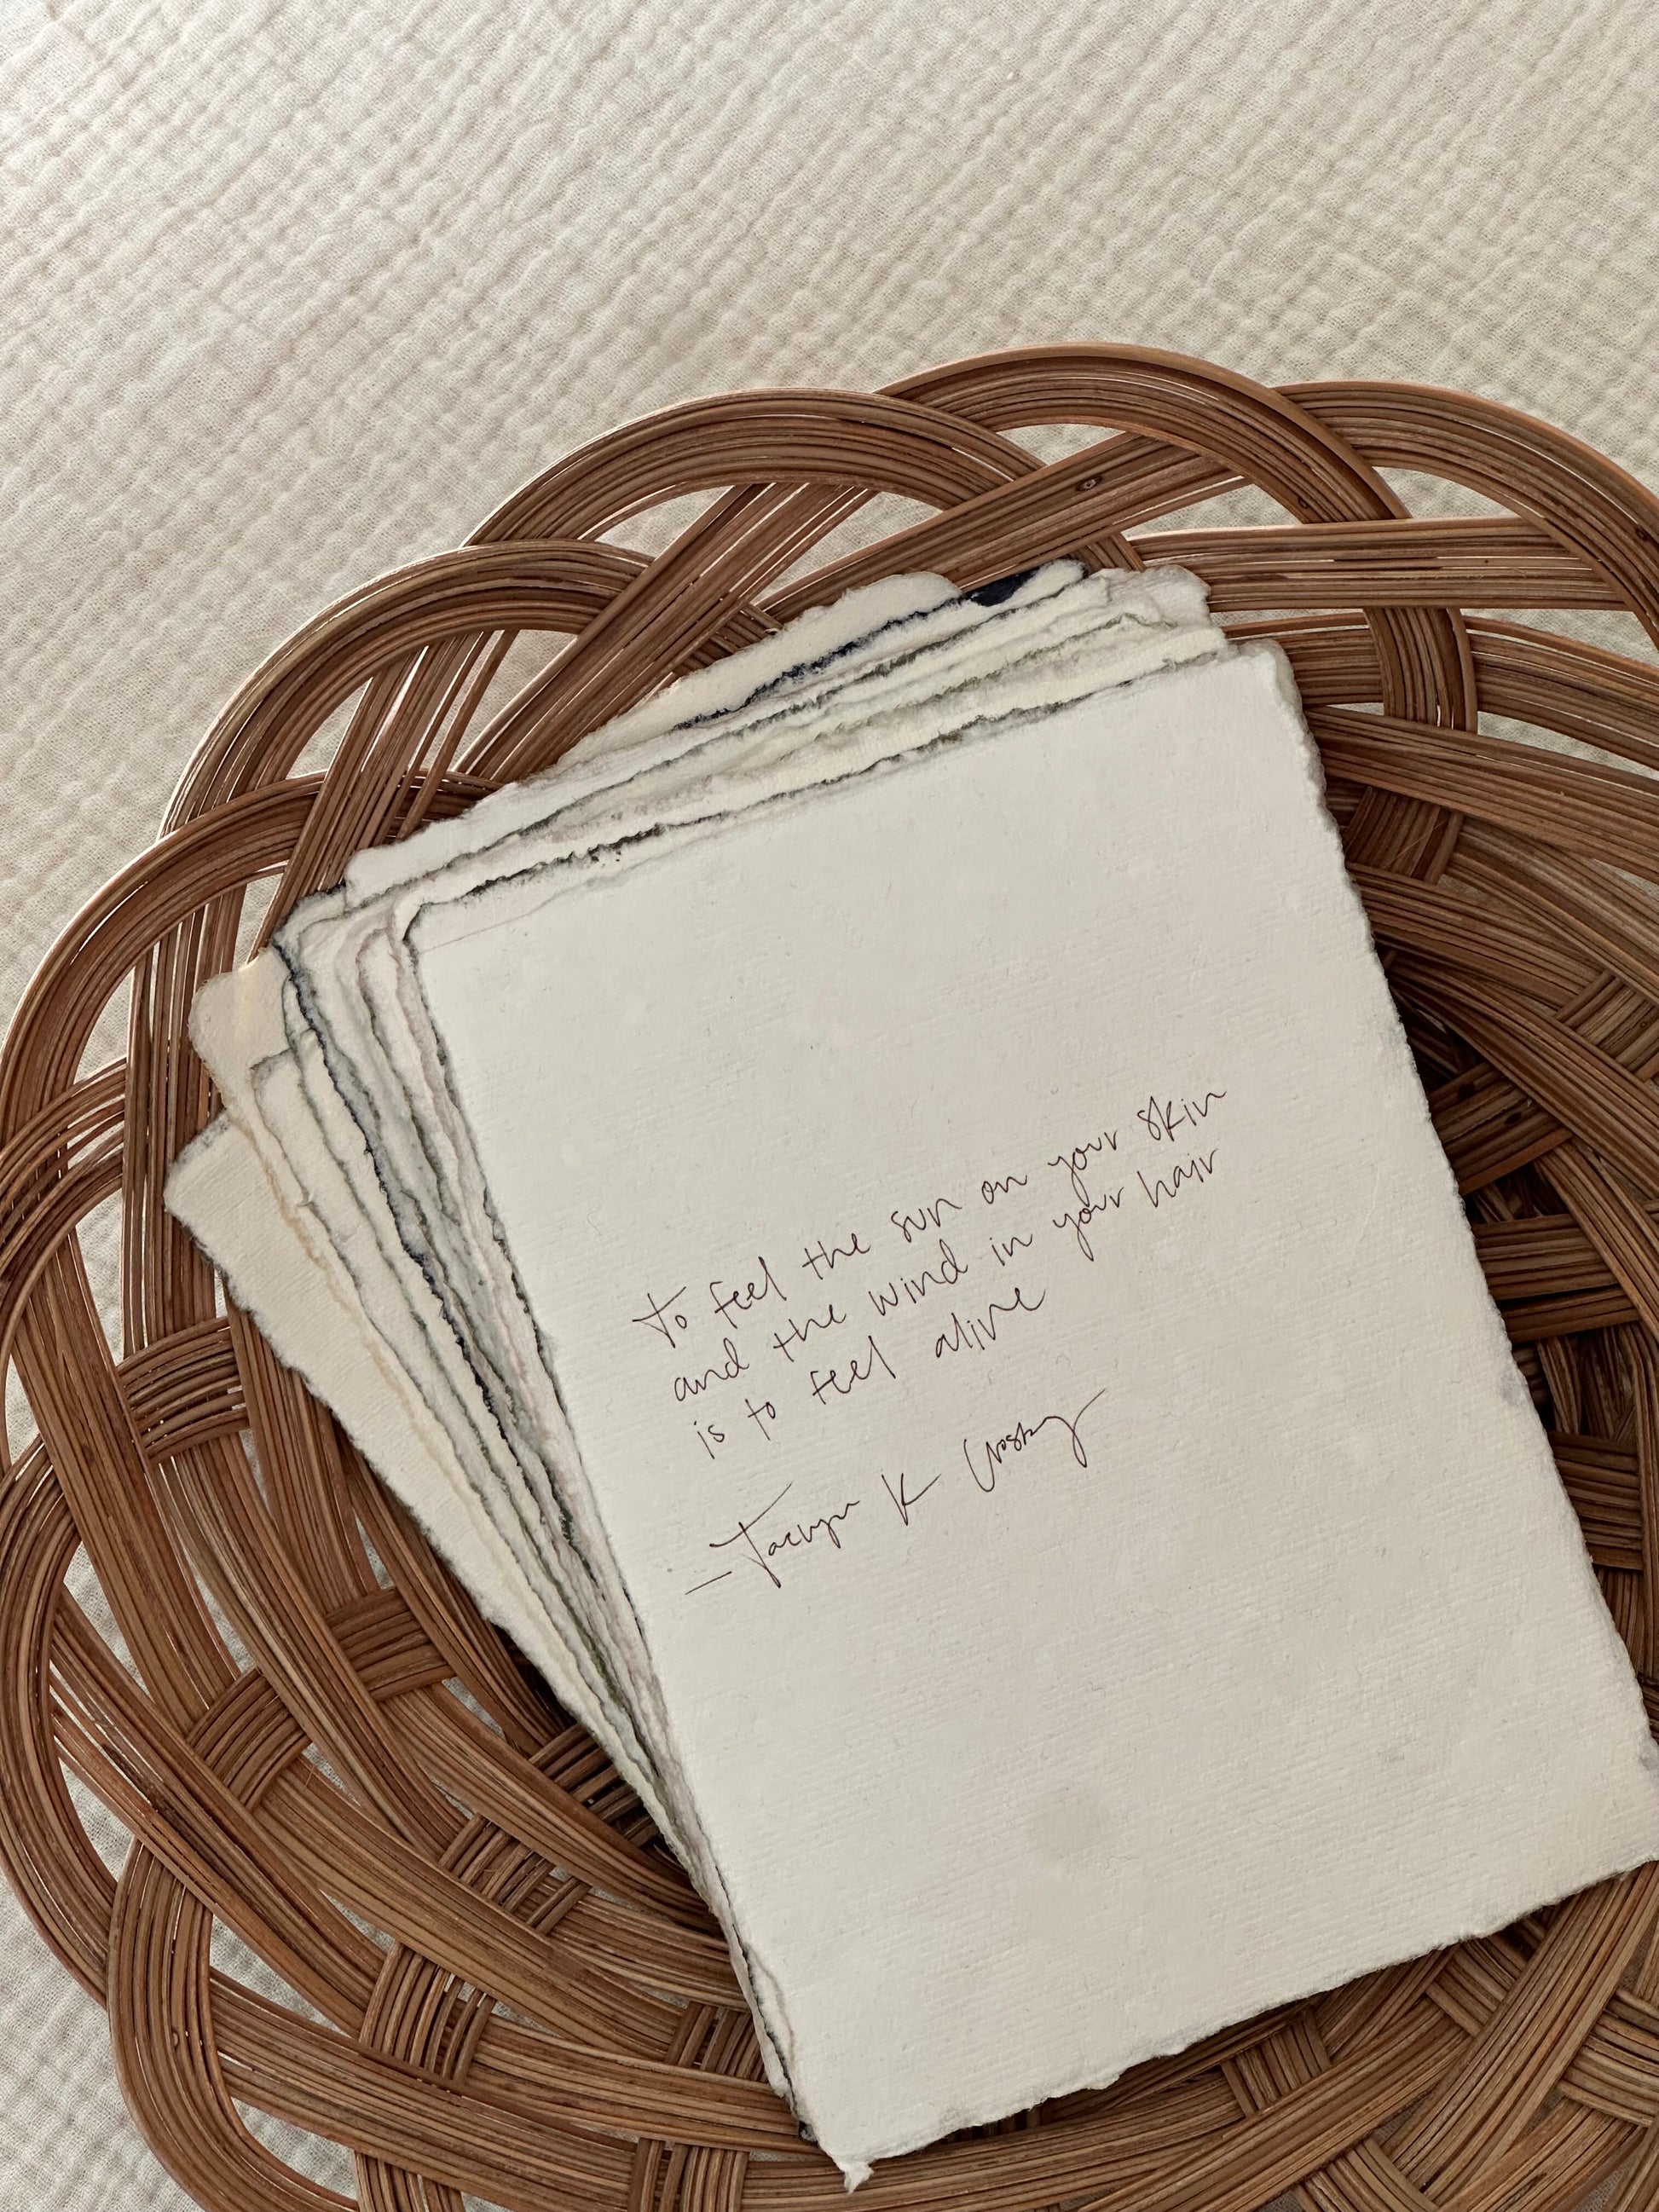 to feel the sun on your skin
and the wind in your hair
is to feel alive
- K Crosby